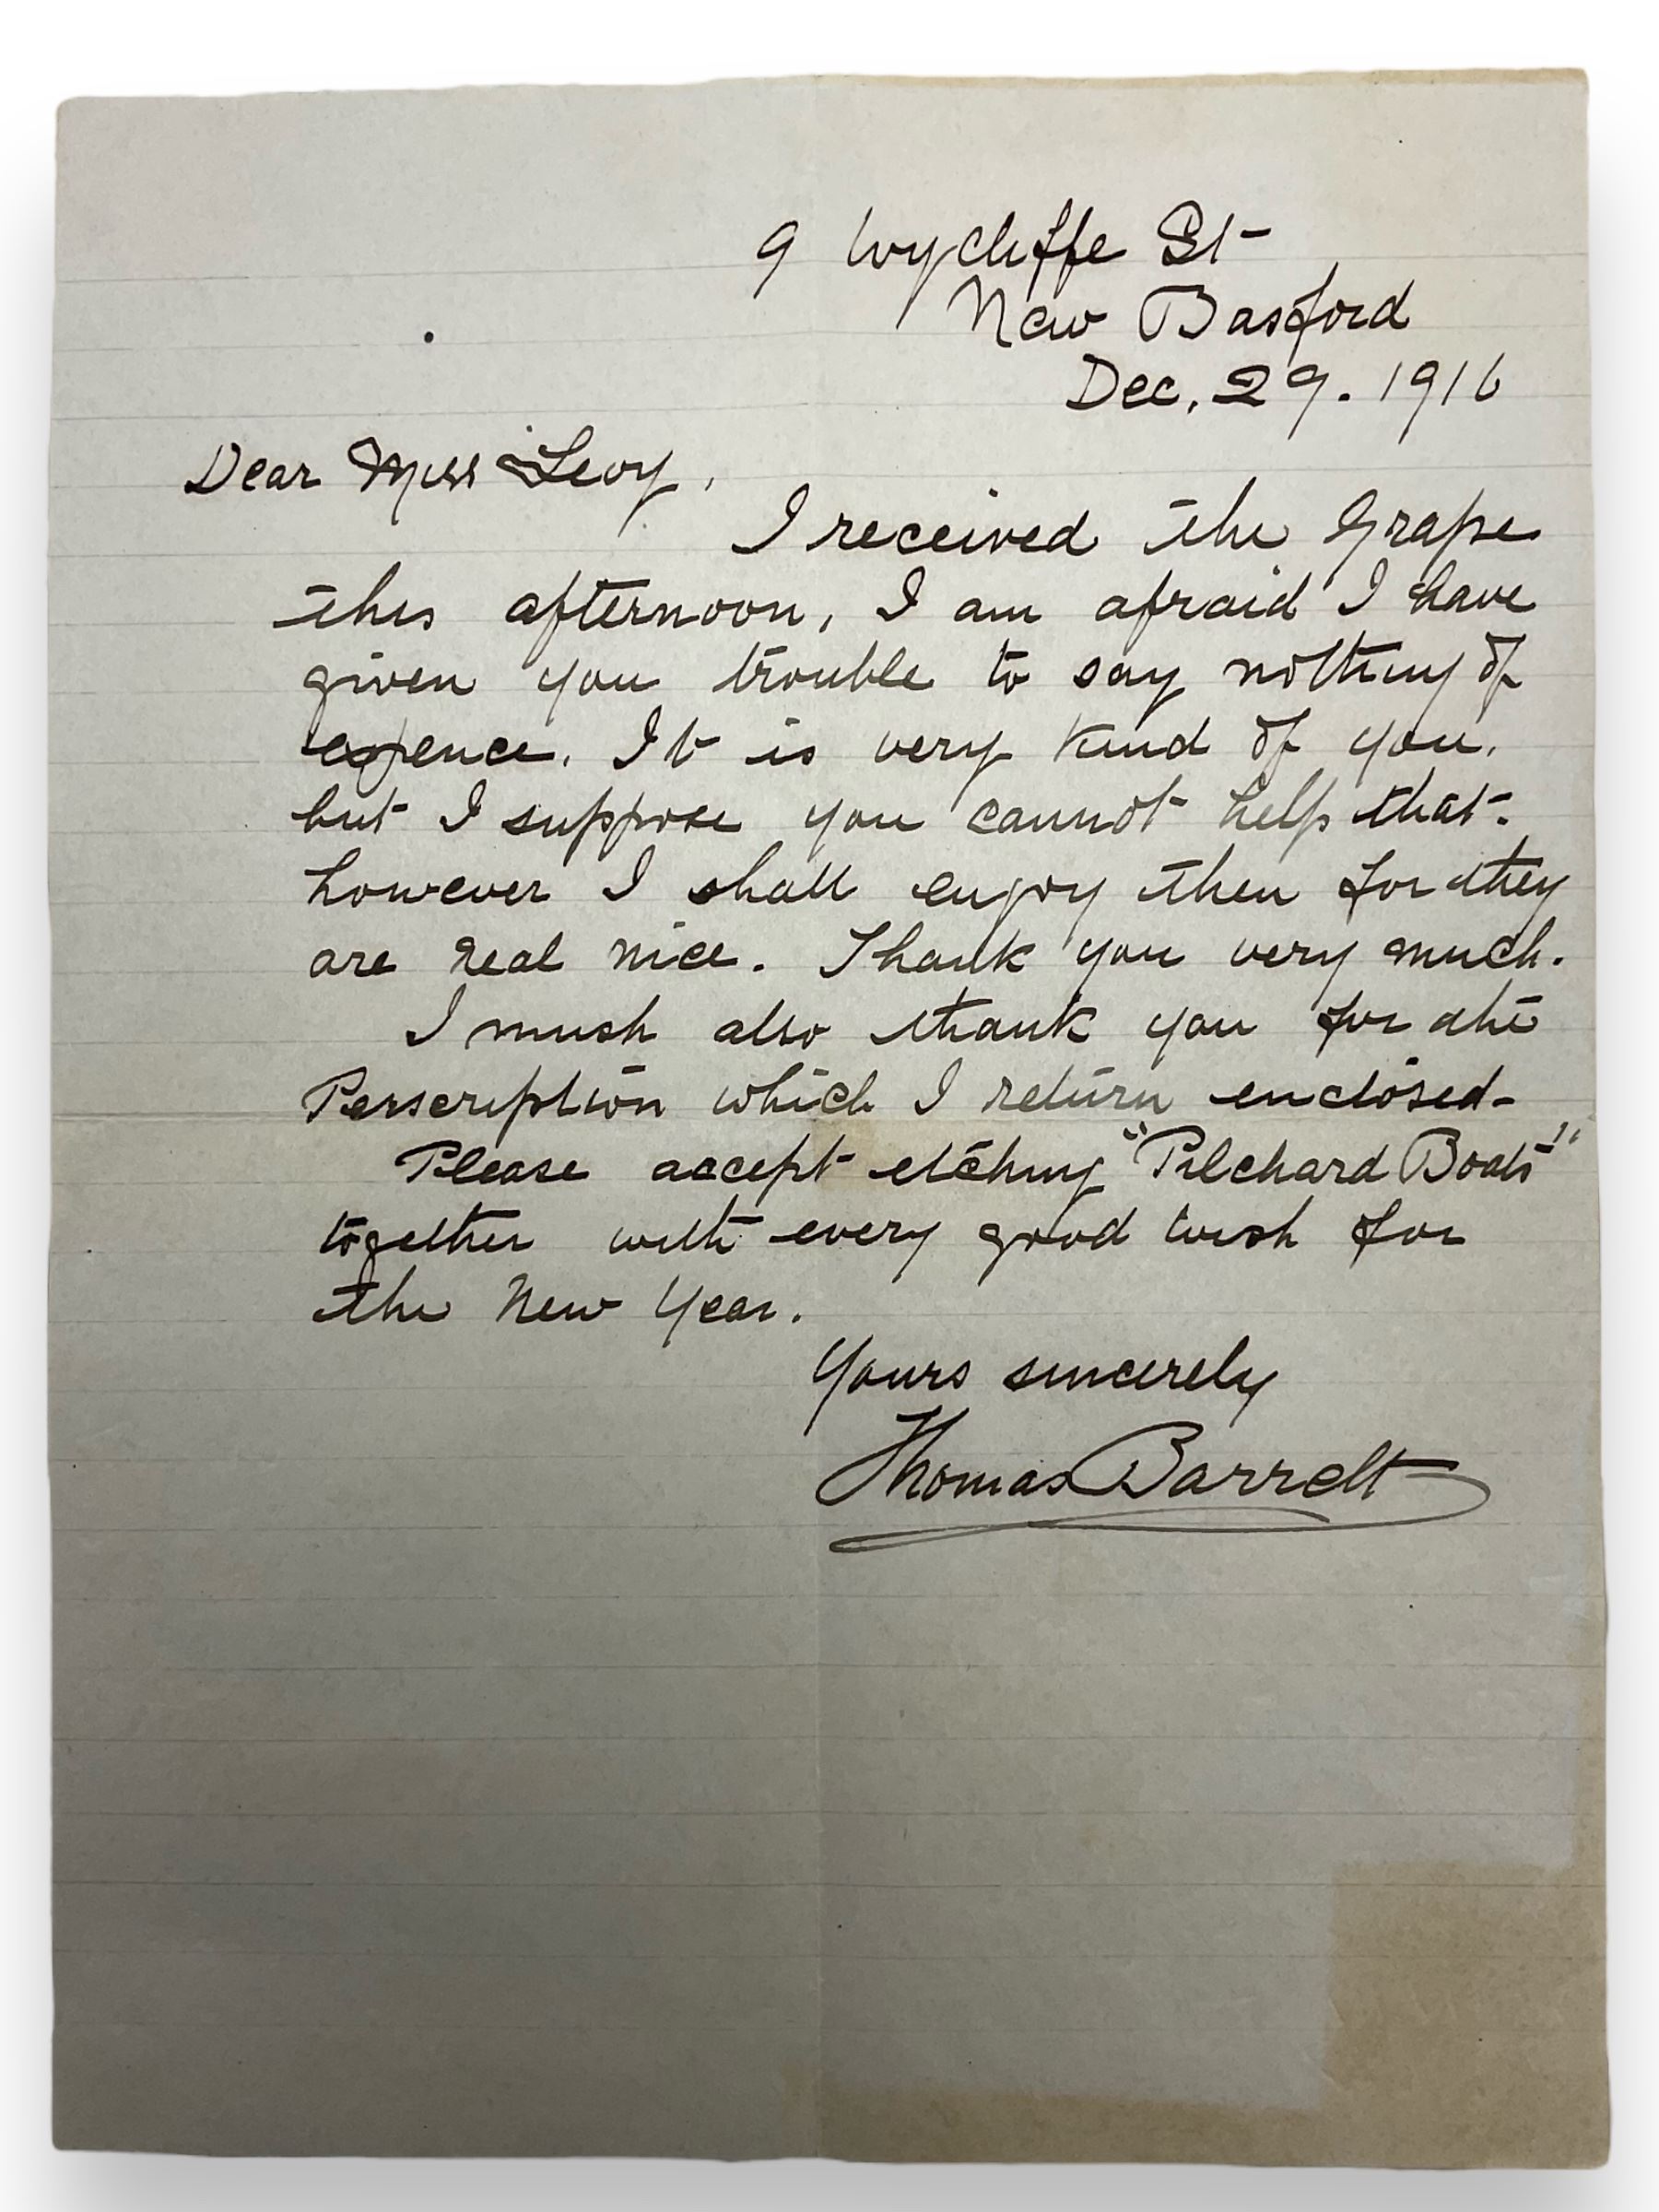 9 Wycliffe St
New Basford
Dec, 29. 1916
Dear Miss Levy,
I received the Grape
this afternoon, I am afraid I have
given you trouble to say nothing of
expence. It is very kind of you.
but I suppose you cannot help that.
however I shall enjoy then for they
are real nice. Thank you very much.
I mush also thank you for the
Perscription which I return enclosed-
Please accept etching "Pilchard Boats"
together with every good wish for
the New Year.
Yours sincerely
Thomas Barrett